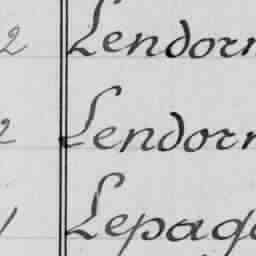 2 Lendorn
2 Lendorn
1 Lepage